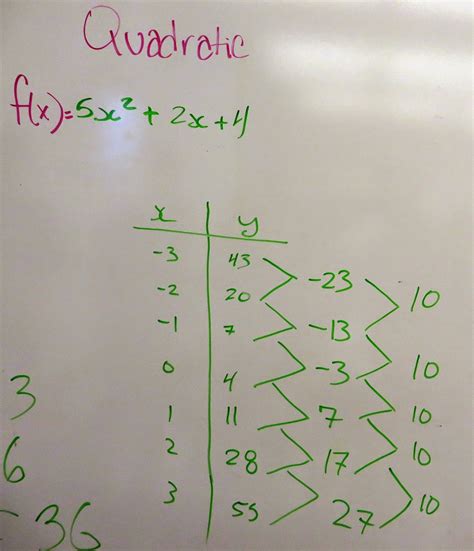 Quadratic
f(x)=5x²+2x+4
x y
-3 43
-23
-2 20 10
-1 7 -13
0 -3 10
3 4
1 11 7 10
6 2 28 17 10
3 55 27 10
-36